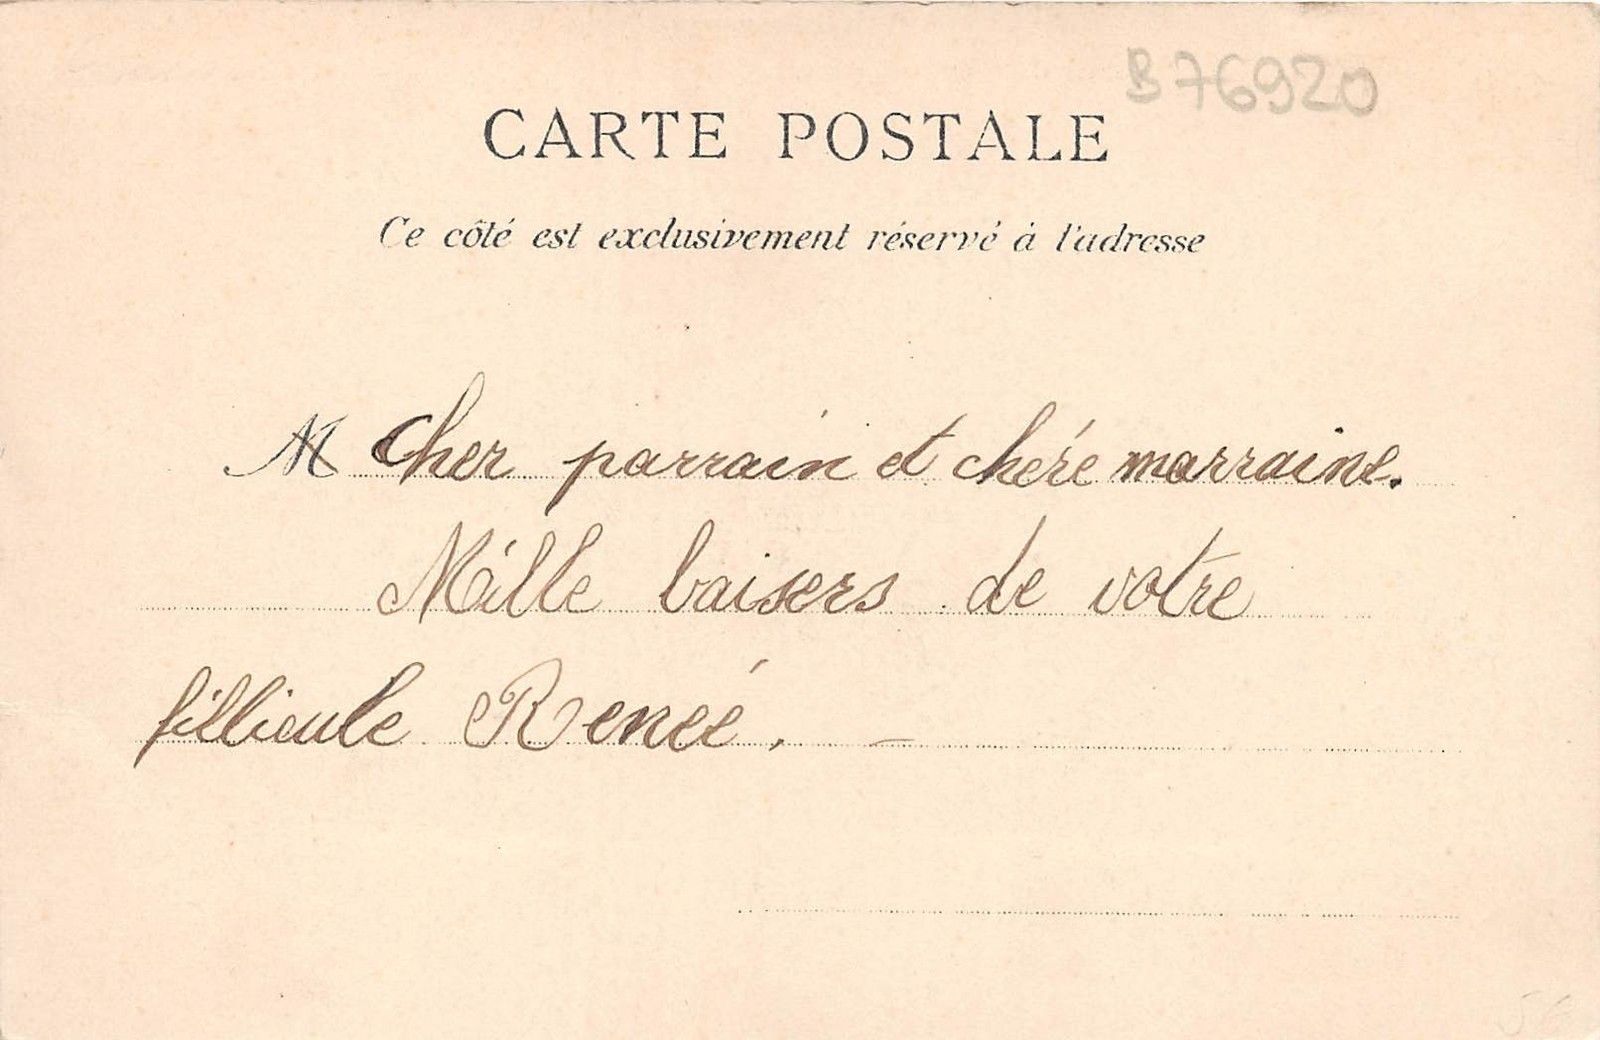 B 76920
CARTE POSTALE
Ce côté est exclusivement réservé à l'adresse
M Cher parrain et chére marraine.
Mille baisers de votre
fillieule Renée.